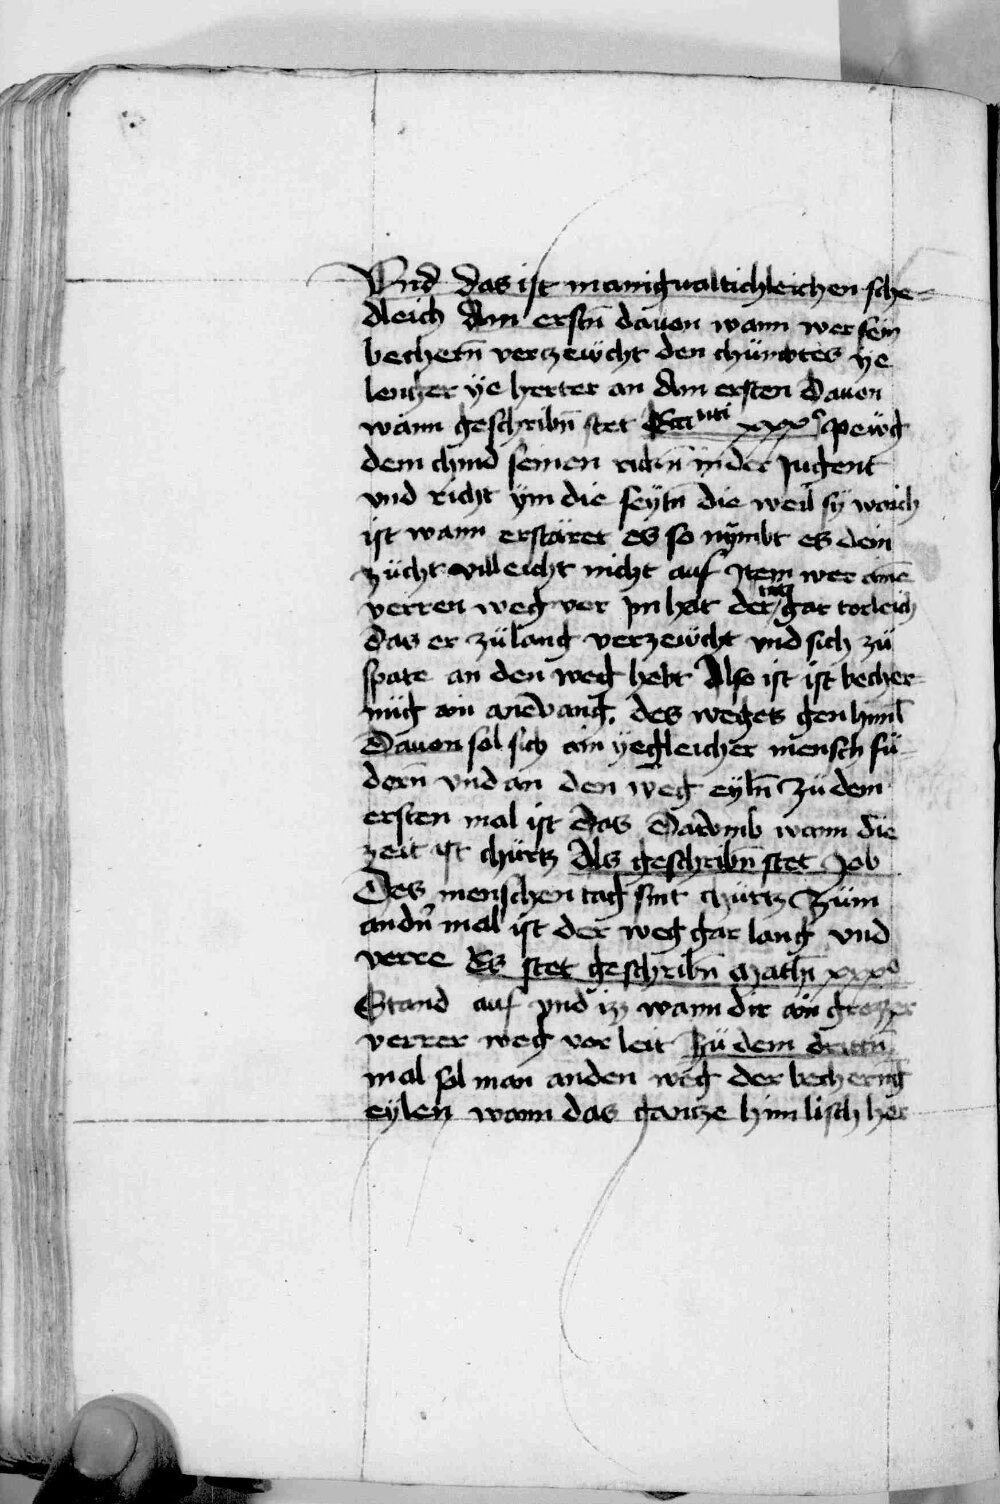 Vnd das ist manigualtichleichen sche-
dleich Am erstn̄ dauon wann wer sein
bechern̄ verzewcht den chümbt es ye
lenger ye herter an Am ersten Dauon
wann geschribn̄ stet xxxº pewg
dem chind seinen rukn̄ in der Jugent
vnd richt ym die seytn̄ die weil sy waich
ist wann erstaret es so nymbt es dein
zücht villeicht nicht auf Item wer ainē
verren weg vor ym hat der tut gar torleich
das er zü lang verzewcht vnd sich zü
spate an den weg hebt Also ist ist becher-
nüg ain anevang des weges gen himl̄
Dauon sol sich ain yegleicher mensch fü-
dern̄ vnd an den weg eyln̄ zü dem
ersten mal ist das Darvmb wann die
zeit ist chürtz Als geschribn̄ stet Job
Des menschen tag sint chürtz Züm
andn̄ mal ist der weg gar lang vnd
verre Es stet geschribn̄ xxxº
Stand auf vnd izz wann dir ain grozzer
verrer weg vor leit Zü dem drittn̄
mal sol man an den weg der becherūg
eylen wann das gantze himlisch her